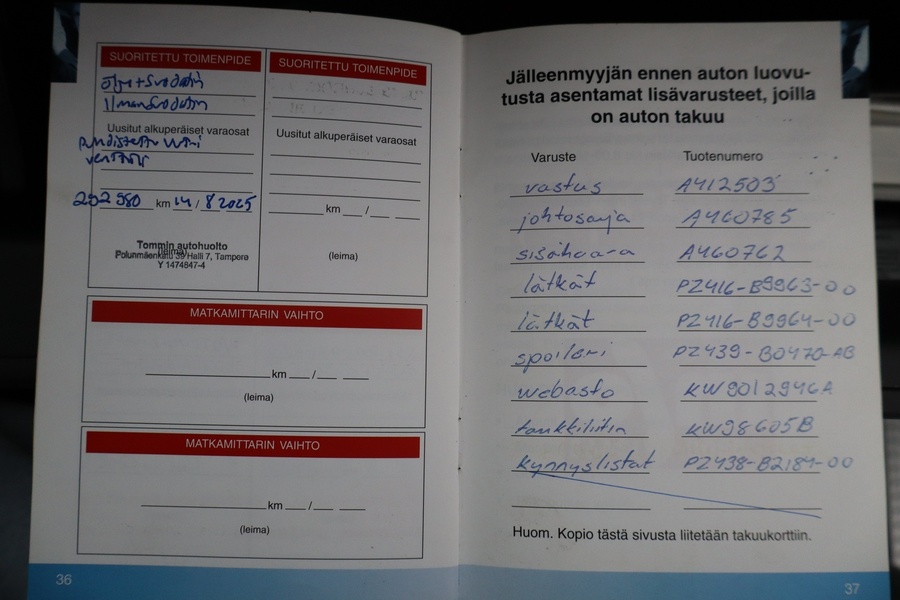 SUORITETTU TOIMENPIDE
öljy+Suodatin
ilmanSuodatin
Uusitut alkuperäiset varaosat
puhdistettu
292 980 km 14 / 8 2025
Tommin autohuolto
(leima)
Polunmäenkatu 39 Halli 7, Tampere
Y 1474847-4
SUORITETTU TOIMENPIDE
Uusitut alkuperäiset varaosat
km /
(leima)
MATKAMITTARIN VAIHTO
km /
(leima)
MATKAMITTARIN VAIHTO
km /
(leima)
36
Jälleenmyyjän ennen auton luovu-
tusta asentamat lisävarusteet, joilla
on auton takuu
Varuste Tuotenumero
vastus A412503
johtosarja A460785
sisähaara A460762
lätkät PZ416-B9963-00
lätkät PZ416-B9964-00
spoileri PZ439-B0470-AB
webasto KW9012946A
tankkiliitin KW98605B
kynnyslistat PZ438-B2184-00
Huom. Kopio tästä sivusta liitetään takuukorttiin.
37